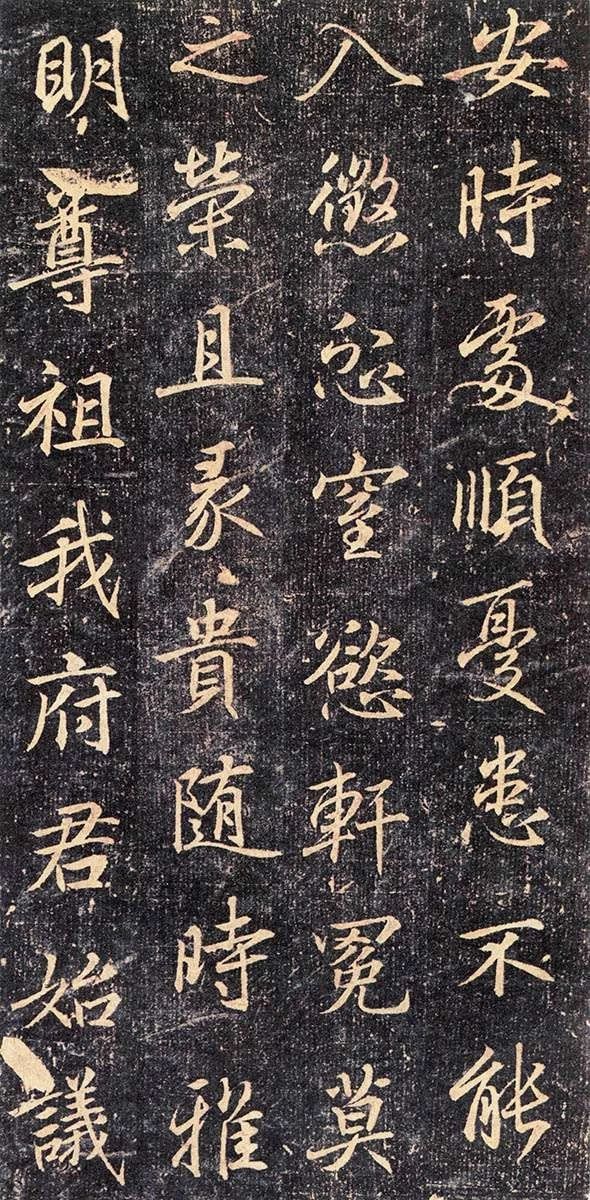 安時處順憂患不能
入懲忿窒慾軒冕莫
之榮且彖貴随時雅
明尊祖我府君始議